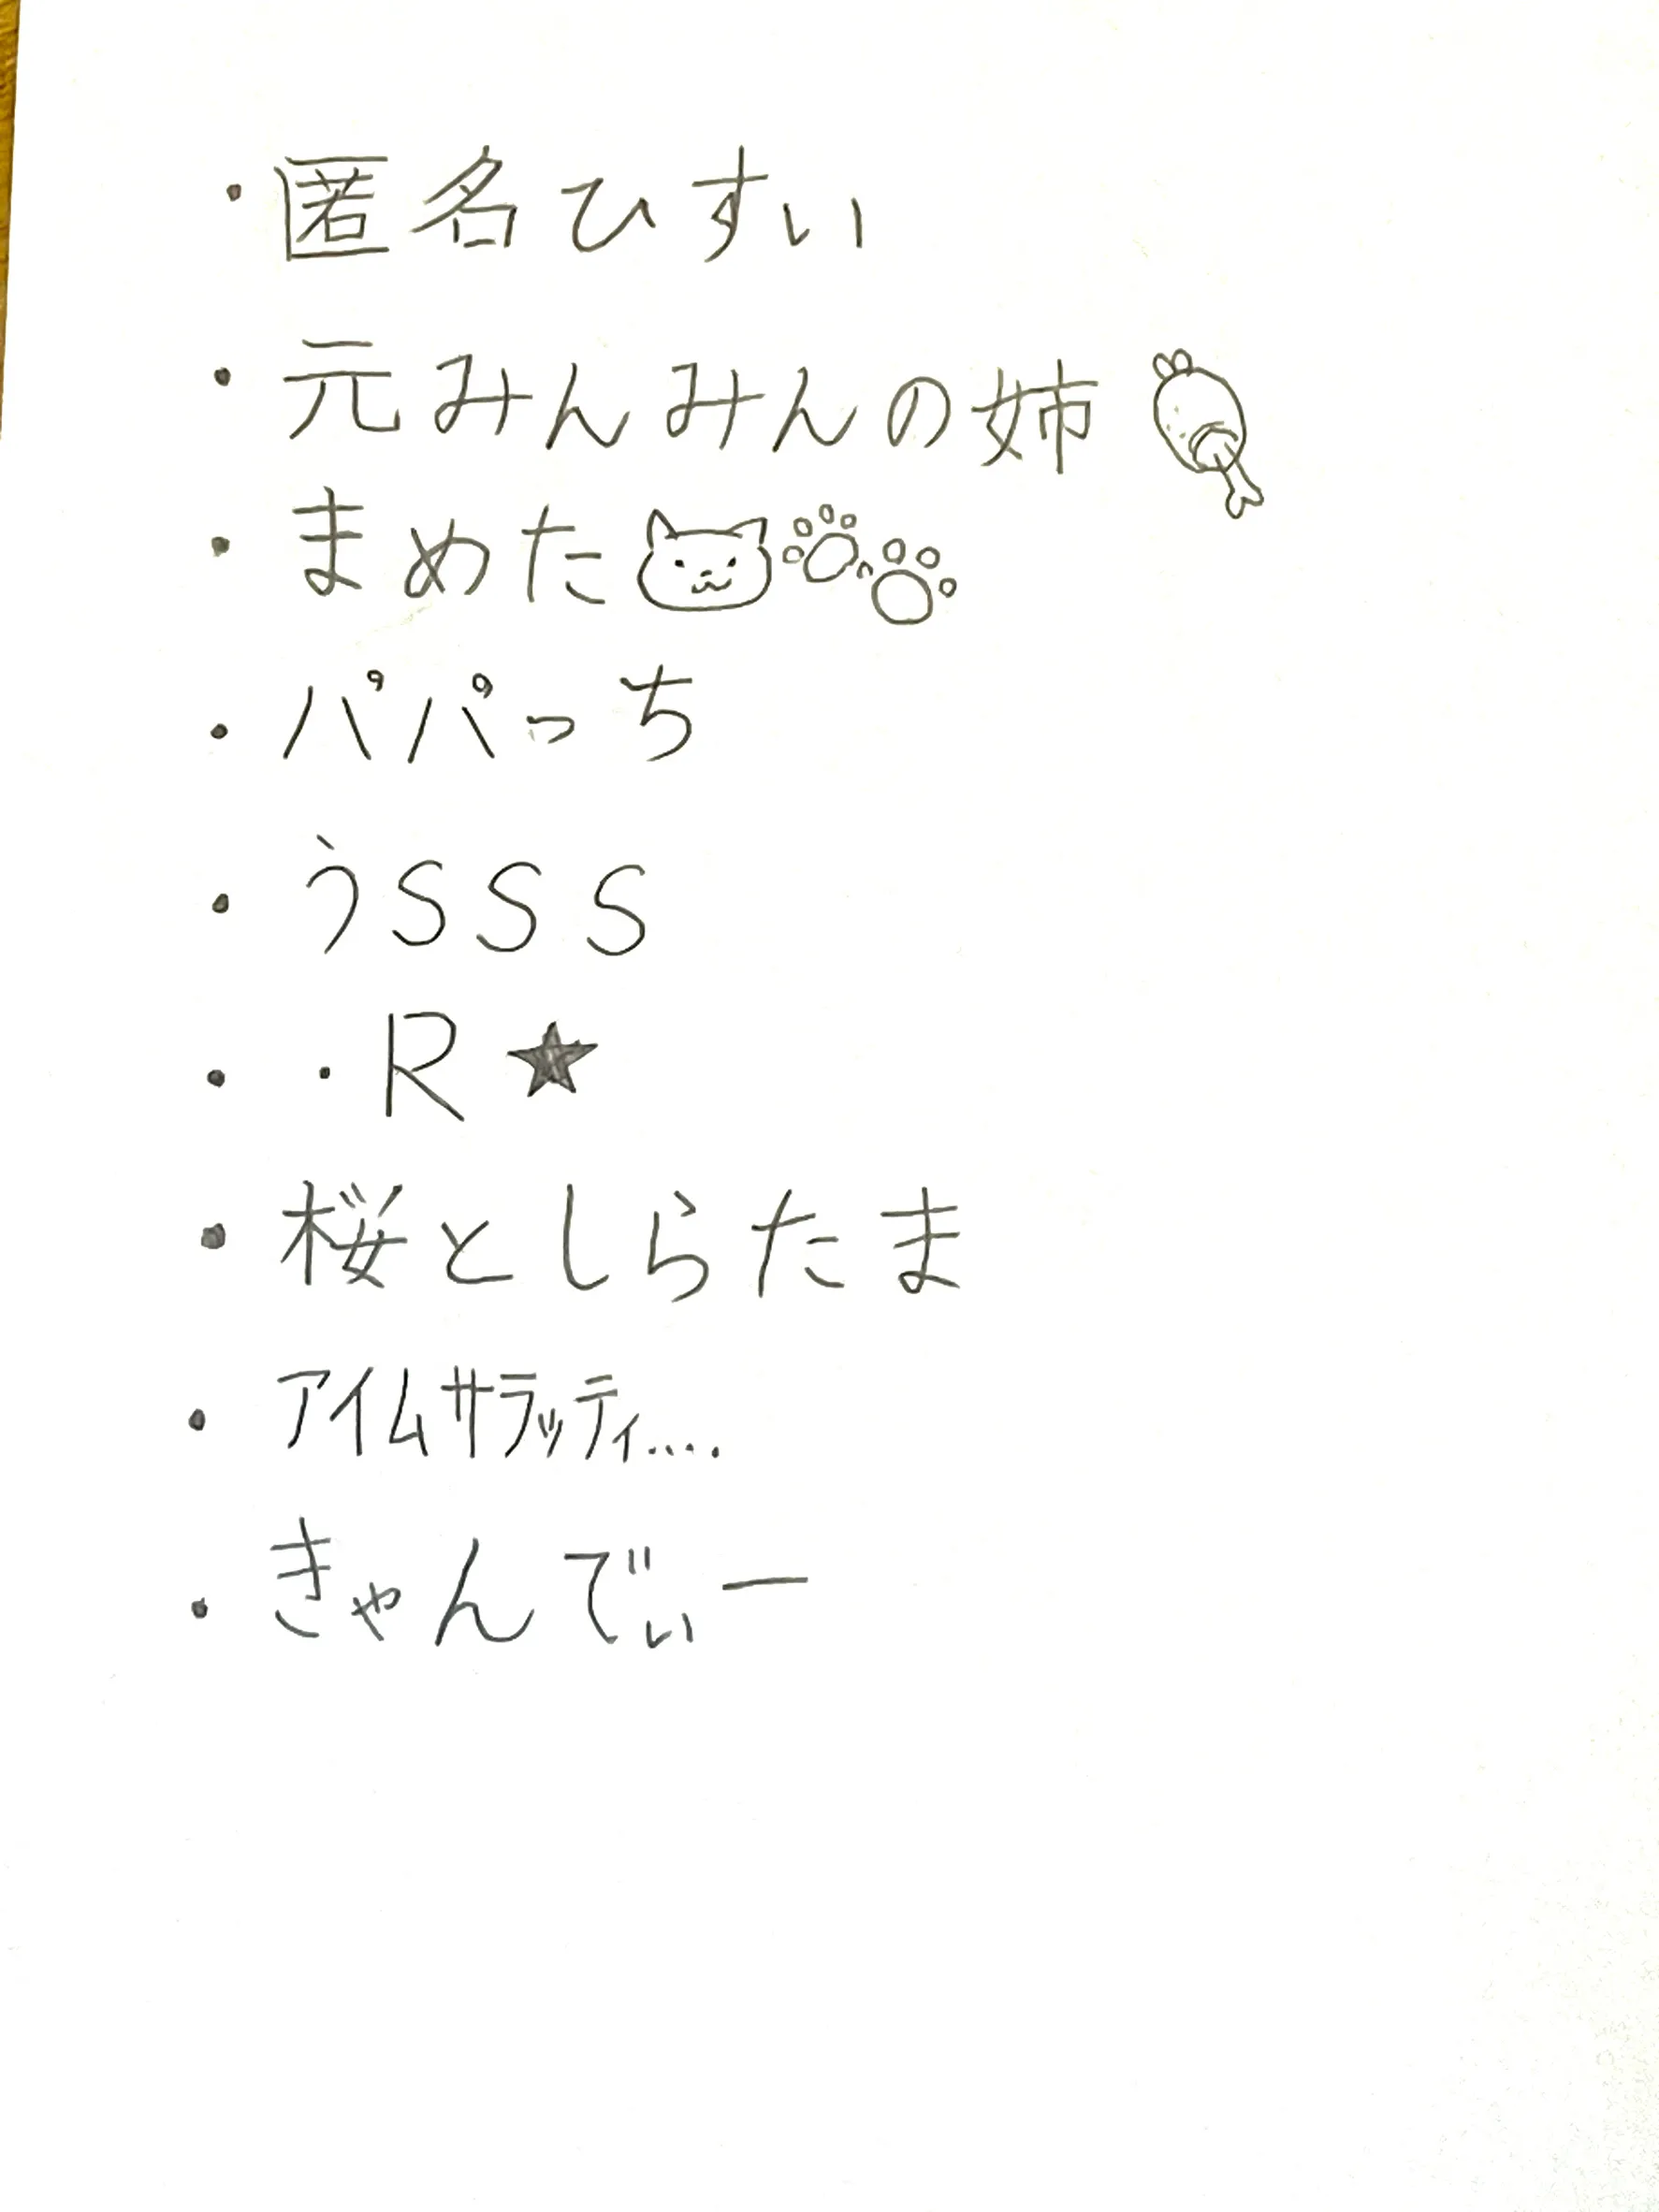 ・匿名ひすい
・元みんみんの姉🍗
・まめた🐱🐾
・パパっち
・うSSS
・・R★
・桜としらたま
・アイムサラッティ....
・きゃんでぃー